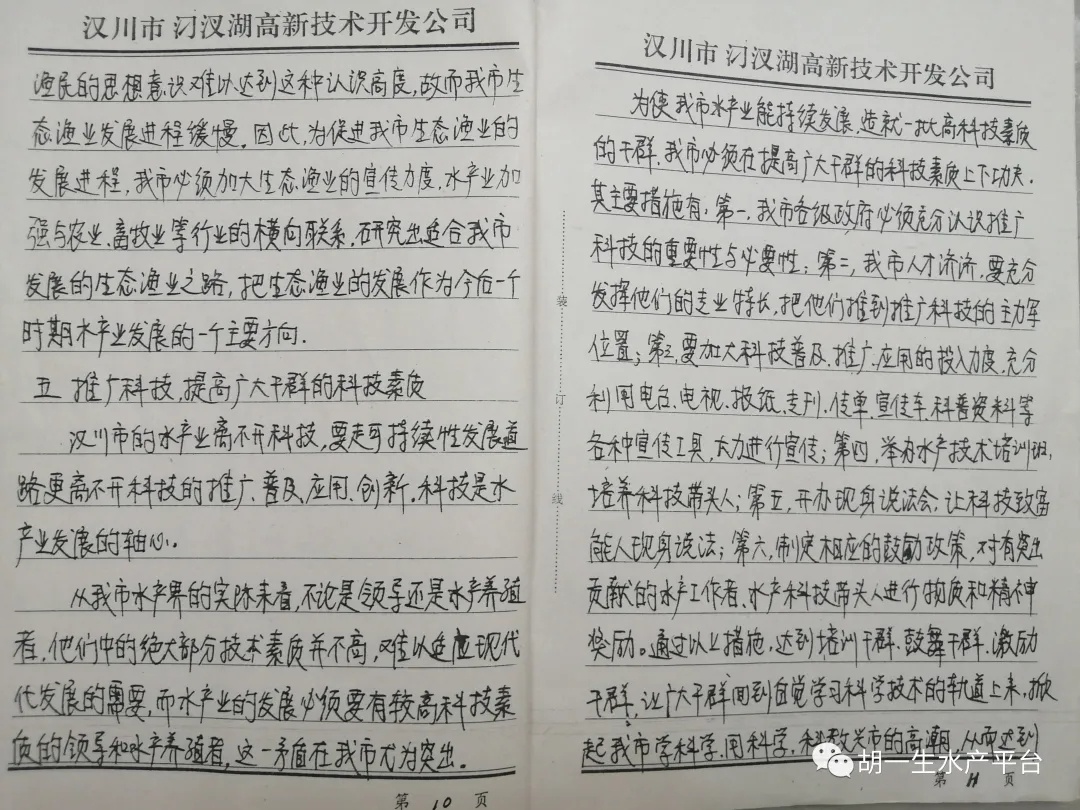 汉川市 汈汊湖高新技术开发公司
渔民的思想意识难以达到这种认识高度,故而我市生
态渔业发展进程缓慢。因此,为促进我市生态渔业的
发展进程,我市必须加大生态渔业的宣传力度,水产业加
强与农业、畜牧业等行业的横向联系,研究出适合我市
发展的生态渔业之路,把生态渔业的发展作为今后一个
时期水产业发展的一个主要方向.
五 推广科技,提高广大干群的科技素质
汉川市的水产业离不开科技,要走可持续性发展道
路更离不开科技的推广、普及、应用、创新。科技是水
产业发展的轴心.
从我市水产界的实际来看,不论是领导还是水产养殖
者,他们中的绝大部分技术素质并不高,难以适应现代
代发展的需要,而水产业的发展必须要有较高科技素
质的领导和水产养殖者,这一矛盾在我市尤为突出。
第 10 页
装
订
线
汉川市 汈汊湖高新技术开发公司
为使我市水产业能持续发展,造就一批高科技素质
的干群,我市必须在提高广大干群的科技素质上下功夫.
其主要措施有,第一,我市各级政府必须充分认识推广
科技的重要性与必要性;第二,我市人才济济,要充分
发挥他们的专业特长,把他们推到推广科技的主力军
位置;第三,要加大科技普及、推广、应用的投入力度,充分
利用电台、电视、报纸、专刊、传单、宣传车、科普资料等
各种宣传工具,大力进行宣传;第四,举办水产技术培训班,
培养科技带头人;第五,开办现身说法会,让科技致富
能人现身说法;第六,制定相应的鼓励政策,对有突出
贡献的水产工作者、水产科技带头人进行物质和精神
奖励。通过以上措施,达到培训干群、鼓舞干群、激励
干群,让广大干群回到自觉学习科学技术的轨道上来,掀
起我市学科学、用科学,科教兴市的高潮,从而达到
第 11 页
胡一生水产平台